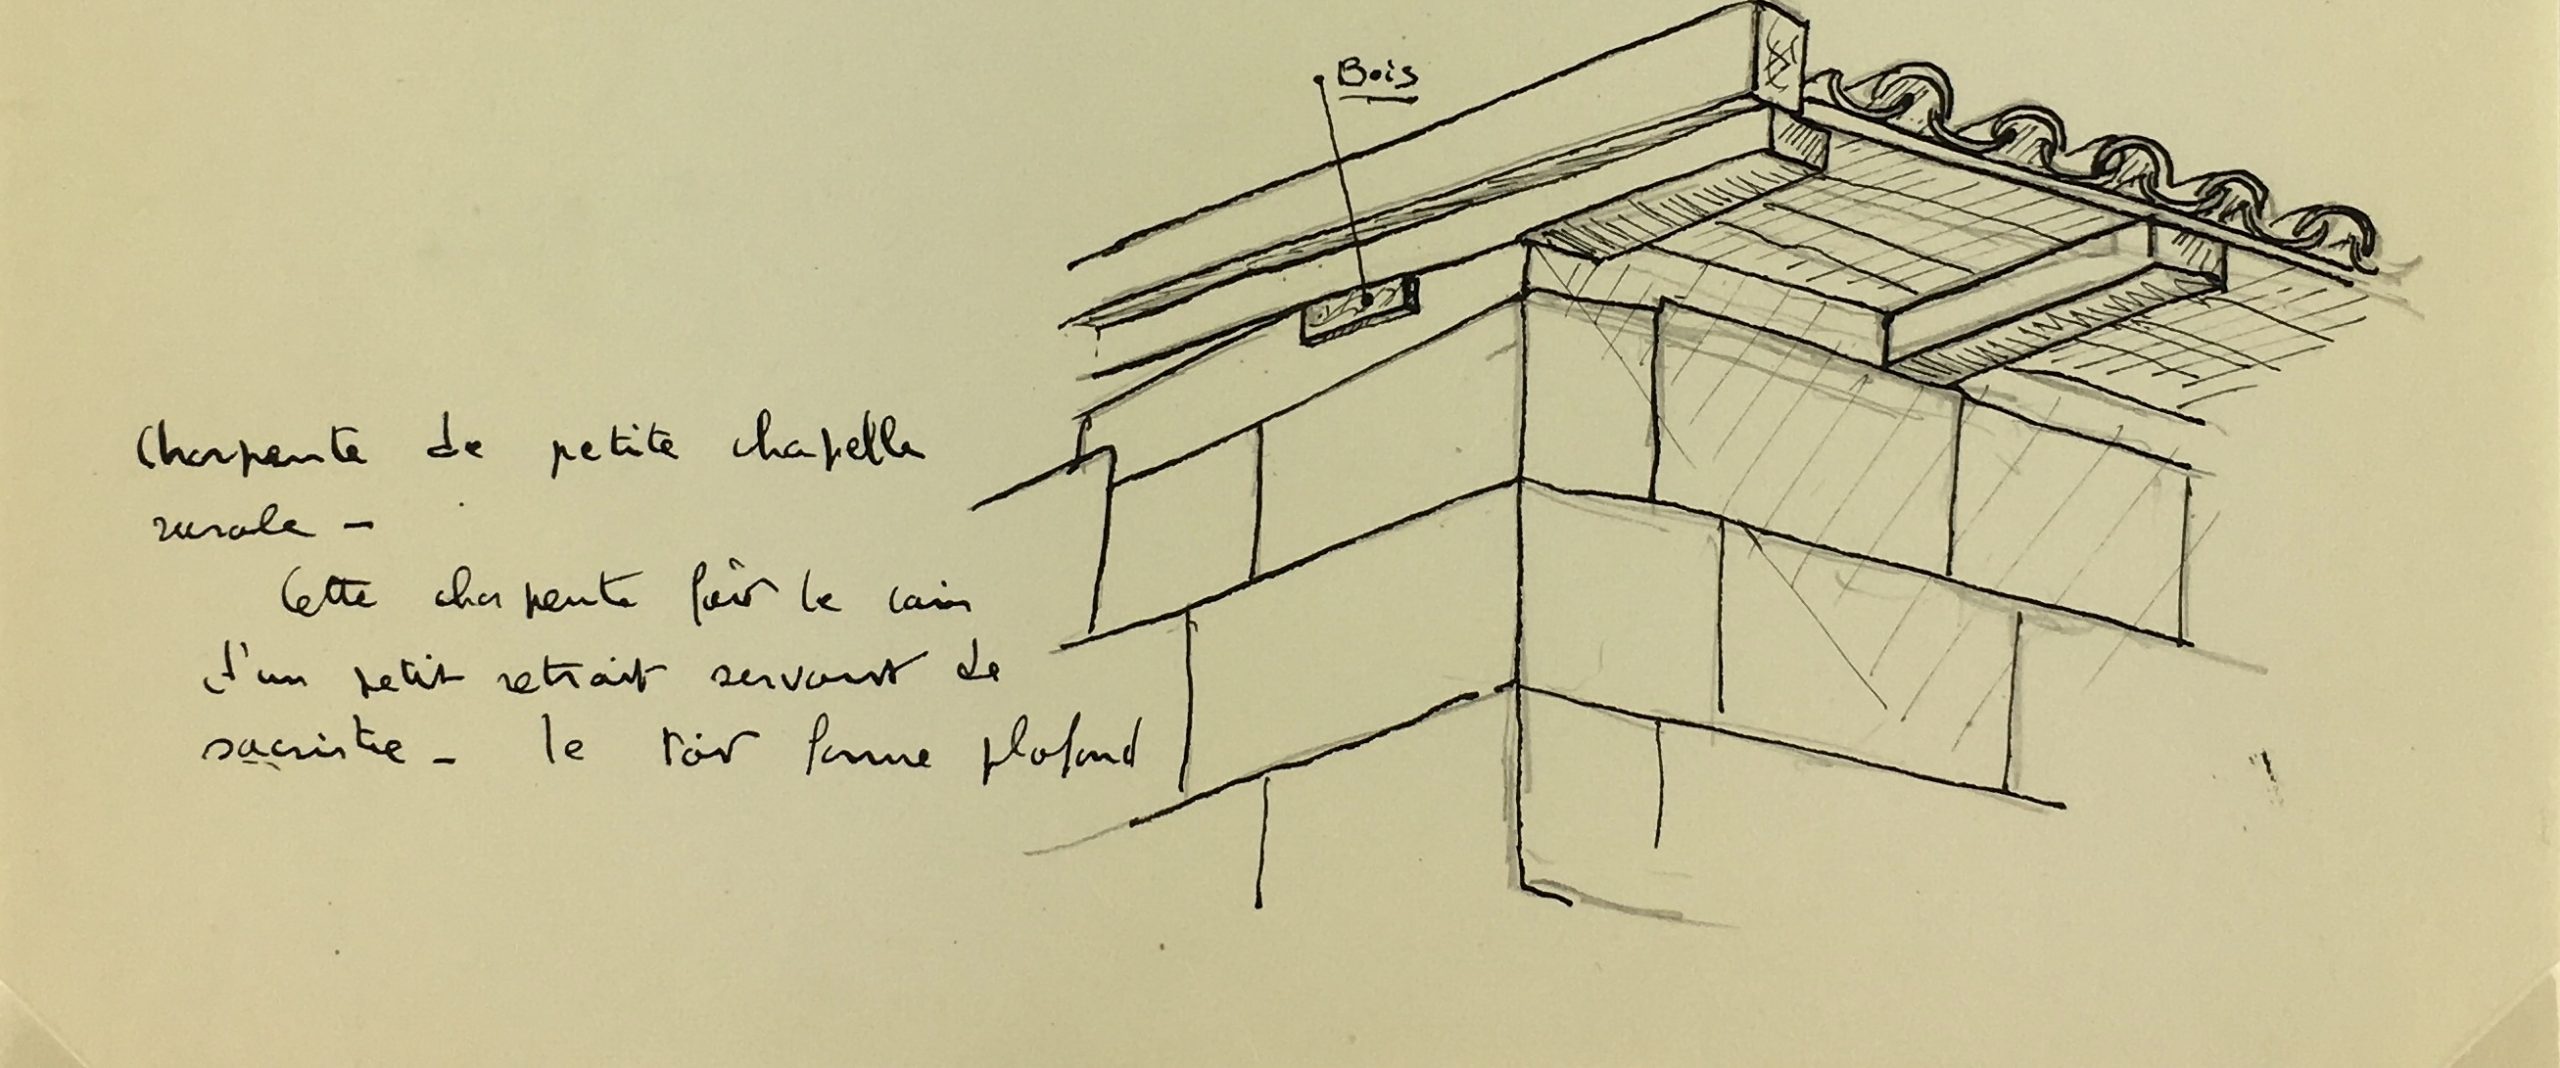 Bois
Charpente de petite chapelle
rurale -
Cette charpente fait le coin
d'un petit retrait servant de
sacristie - le toit forme plafond